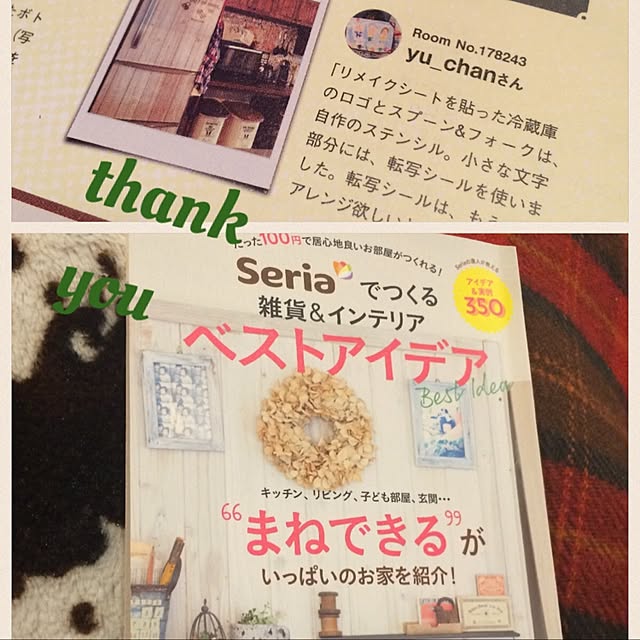 ボト
(写
Room No.178243
yu_chanさん
「リメイクシートを貼った冷蔵庫
のロゴとスプーン&フォークは、
自作のステンシル。小さな文字
部分には、転写シールを使いま
した。転写シールは、もう
アレンジ欲しい
thank
you
たった100円で居心地良いお部屋がつくれる!
Seria でつくる
雑貨&インテリア
ベストアイデア
Best Idea
Seriaの達人が教える
アイデア
&実例
350
キッチン、リビング、子ども部屋、玄関…
“まねできる”が
いっぱいのお家を紹介!